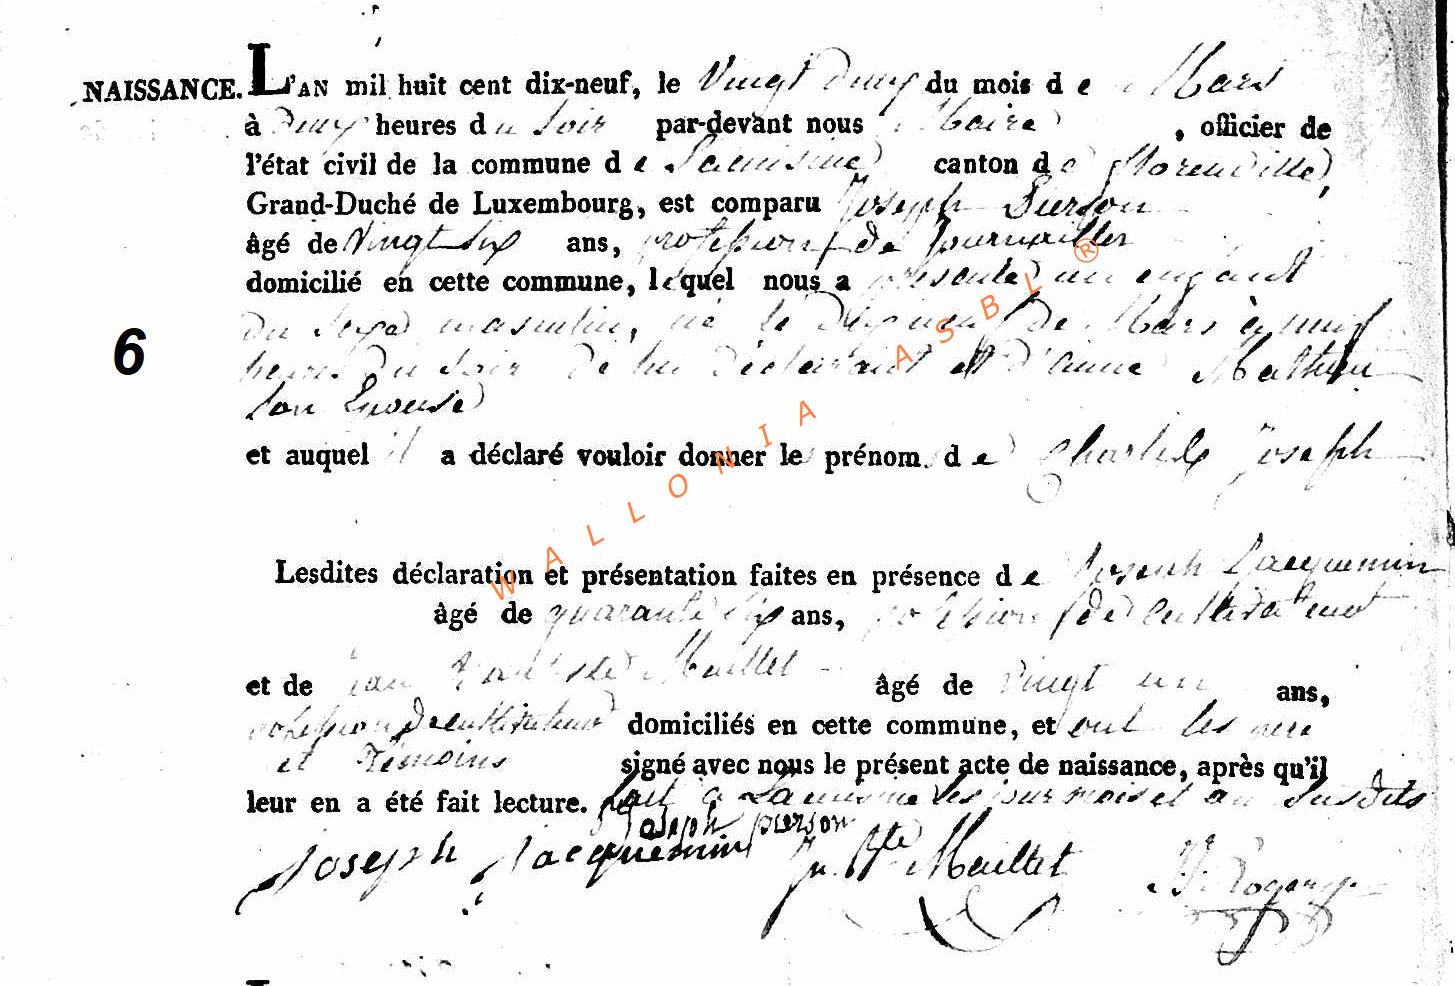 NAISSANCE. L'AN mil huit cent dix-neuf, le Vingt deux du mois de Mars
à deux heures du Soir par-devant nous Maire, officier de
l'état civil de la commune de canton de florenville,
Grand-Duché de Luxembourg, est comparu Joseph Pierson
âgé de Vingt six ans, profession de Journaillier
domicilié en cette commune, lequel nous a présenté un enfant
6
du sexe masculin, né le Dix neuf de Mars à neuf
heures du Soir de lui déclarant et d'anne Mathieu
son Epouse
et auquel il a déclaré vouloir donner les prénoms de Charles Joseph
Lesdites déclaration et présentation faites en présence de Joseph Jacquemin
âgé de quarante six ans, profession de cultivateur
et de jean Baptiste Maillet âgé de vingt un ans,
profession de cultivateur domiciliés en cette commune, et ont les père
et Témoins signé avec nous le présent acte de naissance, après qu'il
leur en a été fait lecture. fait à les jour mois et an Susdits
Joseph pierson
Joseph Jacquemin Jn Bte Maillet
WALLONIA ASBL ®